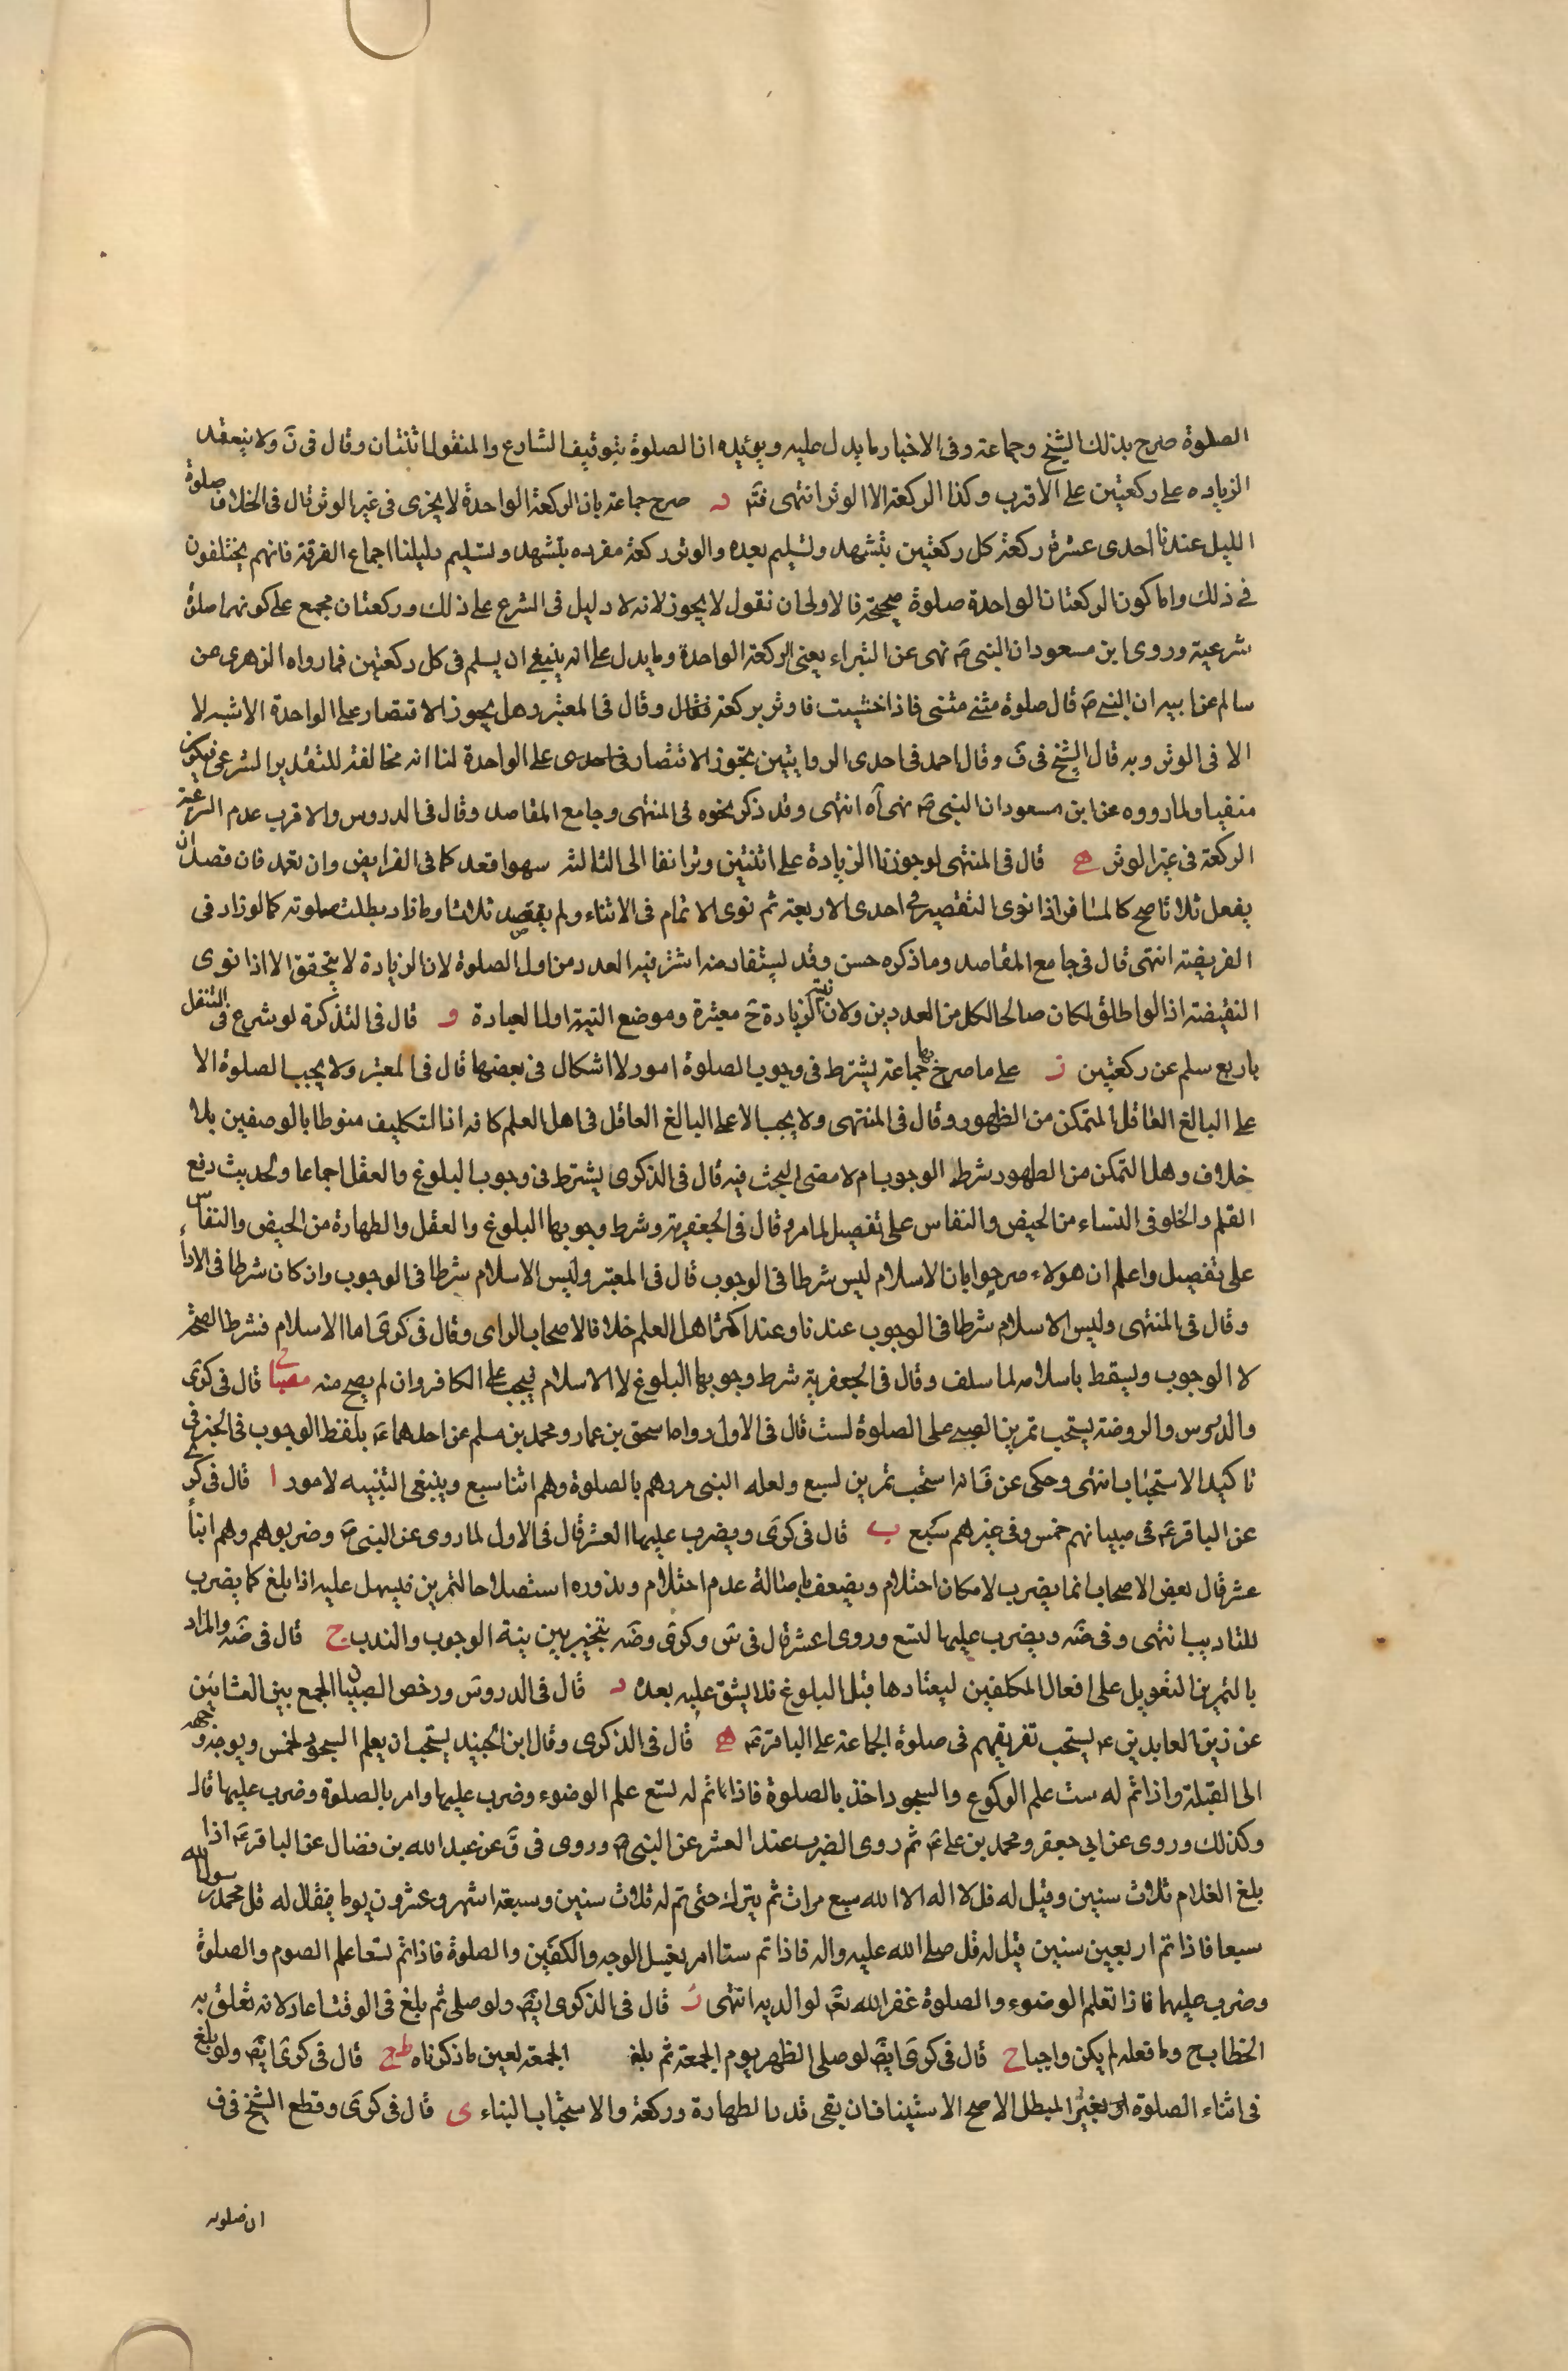 الصلوة صرح بذلك الشيخ وجماعة وفى الاخبار ما يدل عليه ويؤيده ان الصلوة بتوقيف الشارع والمنقول اثنتان وقال فى ن ولا ينعقد
الزياده على ركعتين على الاقرب وكذا الركعة الا الوتر انتهى فتم د صرح جماعة بان الركعة الواحدة لا يجزى فى غير الوتر قال فى الخلاف صلوة
الليل عندنا احدى عشرة ركعة كل ركعتين بتشهد وتسليم بعده والوتر ركعة مفرده بتشهد وتسليم دليلنا اجماع الفرقة فانهم لا يختلفون
فى ذلك واما كون الركعتان الواحدة صلوة صحيحة فالاولى ان نقول لا يجوز لانه لا دليل فى الشرع على ذلك وركعتان مجمع على كونهما صلوة
شرعية وروى ابن مسعود ان النبى ص نهى عن البتراء يعنى الركعة الواحدة وما يدل على انه ينبغى ان يسلم فى كل ركعتين فما رواه الزهرى عن
سالم عن ابيه ان النبى ص قال صلوة مثنى مثنى فاذا خشيت فاوتر بركعة فقال وقال فى المعتبر وهل يجوز الاقتصار على الواحدة الاشبه لا
الا فى الوتر وبه قال الشيخ فى ف وقال احمد فى احدى الروايتين بجوز الاقتصار فى احدى على الواحدة لنا انه مخالفة للتقدير الشرعى فيكون
منفيا ولما رووه عن ابن مسعود ان النبى ص نهى آه انتهى وقد ذكر نحوه فى المنتهى وجامع المقاصد وقال فى الدروس والاقرب عدم الشرعية
الركعة فى غير الوتر ه قال فى المنتهى لو جوزنا الزيادة على اثنتين وترا نفا الى الثالثه سهوا قعد كما فى الفرايض وان تعمد فان قصد ان
يفعل ثلاثا صح كالمسافر اذا نوى التقصير فى احدى الاربعة ثم نوى الاتمام فى الاثناء ولم يقصد ثلاثا وما زاد بطلت صلوته كما لو زاد فى
الفريضة انتهى قال فى جامع المقاصد وما ذكره حسن وقد يستفاد منه اشتراط نيه العدد من اول الصلوة لان الزيادة لا يتحقق الا اذا نوى
النقيضة اذ لو اطلق لكان صالحا لكل من العددين ولان نية الزيادة ح معتبرة وموضع النية اول العبادة و قال فى التذكرة لو شرع فى التنفل
باربع سلم عن ركعتين ز على ما صرح بها جماعة يشترط فى وجوب الصلوة امور لا اشكال فى بعضها قال فى المعتبر ولا يجب الصلوة الا
على البالغ العاقل المتمكن من الطهور وقال فى المنتهى ولا يجب الا على البالغ العاقل فى اهل العلم كافه اذ التكليف منوطا بالوصفين بلا
خلاف وهل التمكن من الطهور شرط الوجوب ام لا مضى البحث فيه قال فى الذكرى يشترط فى وجوب البلوغ والعقل اجماعا ولحديث رفع
القلم والخلو فى النساء من الحيض والنفاس على تفصيل لما مر وقال فى الجعفرية وشرط وجوبها البلوغ والعقل والطهارة من الحيض والنفاس
على تفصيل واعلم ان هولاء صرحوا بان الاسلام ليس شرطا فى الوجوب قال فى المعتبر وليس الاسلام شرطا فى الوجوب وان كان شرطا فى الاداء
وقال فى المنتهى وليس الاسلام شرطا فى الوجوب عندنا وعند اكثر اهل العلم خلافا لاصحاب الراى وقال فى كرى اما الاسلام فشرط الصحة
لا الوجوب ويسقط باسلامه لما سلف وقال فى الجعفرية شرط وجوبها البلوغ لا الاسلام فيجب على الكافر وان لم يصح منه قال فى كرى
والدروس والروضة يستحب تمرين الصبى على الصلوة لست قال فى الاول رواه اسحق بن عمار ومحمد بن مسلم عن احدهما ع بلفظ الوجوب فى الخبر فى
تاكيد الاستحباب انتهى وحكى عن ف انه استحب تمرين لسبع ولعله النبى مروهم بالصلوة وهم ابناء سبع وينبغى التنبيه لامور ا قال فى كرى
عن الباقر ع فى صبيانهم خمس وفى غيرهم سبع ب قال فى كرى ويضرب عليها العشر قال فى الاول لما روى عن النبى ص وضربوهم وهم ابناء
عشر قال بعض الاصحاب انما يضرب لامكان احتلام ويضعف باصالة عدم احتلام وبدوره استصلاحا لتمرين فيسهل عليه اذا بلغ كما يضرب
للتاديب انتهى وفى ضه ويضرب عليها لتسع وروى لعشر قال فى س وكرى وضه بتخير بين نية الوجوب والندب ج قال فى ضه والمراد
بالتمرين التعويل على افعال المكلفين ليعتادها قبل البلوغ فلا يشق عليه بعده د قال فى الدروس ورخص الصبيان الجمع بين العشائين
عن زين العابدين ع يستحب تفريقهم فى صلوة الجماعة على الباقر ع ه قال فى الذكرى وقال ابن الجنيد يستحب ان يعلم السجود لخمس ويوجه وجهه
الى القبلة واذا تم له ست علم الركوع والسجود اخذ بالصلوة فاذا تم له تسع علم الوضوء وضرب عليها وامر بالصلوة وضرب عليها قال
وكذلك وروى عن ابى جعفر ومحمد بن على ع ثم روى الضرب عند العشر عن النبى ص وروى فى ق عن عبد الله بن فضال عن الباقر ع اذا
بلغ الغلام ثلاث سنين وقيل له قل لا اله الا الله سبع مرات ثم يترك حتى تم له ثلاث سنين وسبعة اشهر وعشرون يوما فيقال له قل محمد رسول الله
سبعا فاذا تم اربعين سنين قيل له قل صلى الله عليه واله فاذا تم ستا امر بغسل الوجه والكفين والصلوة فاذا تم تسعا علم الصوم والصلوة
وضرب عليهما فاذا تعلم الوضوء والصلوة غفر الله تع لوالديه انتهى ز قال فى الذكرى ايض ولو صلى ثم بلغ فى الوقت اعاد لانه تعلق به
الخطاب ح وما فعله لم يكن واجبا ح قال فى كرى ايض لو صلى الظهر يوم الجمعة ثم بلغ الجمعة لعين ما ذكرناه ط قال فى كرى ايض ولو بلغ
فى اثناء الصلوة لو بغير المبطل الاصح الاستيناف ان بقى قدر الطهارة وركعة والا استحباب البناء ى قال فى كرى وقطع الشيخ فى ف
ان صلوته